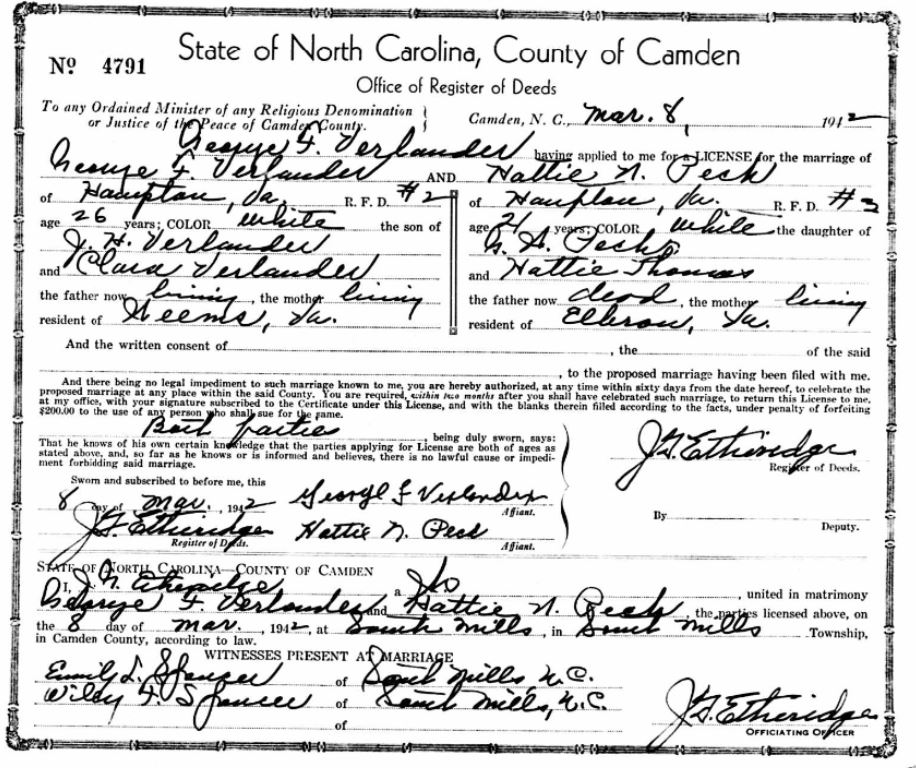 Nº 4791
State of North Carolina, County of Camden
Office of Register of Deeds
To any Ordained Minister of any Religious Denomination
or Justice of the Peace of Camden County.
Camden, N. C., Mar. 8, 1942
George F. Verlander having applied to me for a LICENSE for the marriage of
George F. Verlander AND Hattie N. Peck
of Hampton, Va. R. F. D. #2 of Hampton, Va. R. F. D. #3
age 26 years; COLOR white the son of age 21 years; COLOR white the daughter of
J. H. Verlander
and Clara Verlander and Hattie Thomas
the father now living, the mother living the father now dead, the mother living
resident of Weems, Va. resident of Va.
And the written consent of , the of the said
, to the proposed marriage having been filed with me.
And there being no legal impediment to such marriage known to me, you are hereby authorized, at any time within sixty days from the date hereof, to celebrate the
proposed marriage at any place within the said County. You are required, within two months after you shall have celebrated such marriage, to return this License to me,
at my office, with your signature subscribed to the Certificate under this License, and with the blanks therein filled according to the facts, under penalty of forfeiting
$200.00 to the use of any person who shall sue for the same.
Both parties , being duly sworn, says:
That he knows of his own certain knowledge that the parties applying for License are both of ages as
stated above, and, so far as he knows or is informed and believes, there is no lawful cause or impedi-
ment forbidding said marriage.
J. G. Etheridge
Register of Deeds.
Sworn and subscribed to before me, this
8 day of Mar., 1942 George F Verlander
Affiant.
By
Deputy.
J. G. Etheridge Hattie N. Peck
Register of Deeds. Affiant.
STATE OF NORTH CAROLINA—COUNTY OF CAMDEN
I, a , united in matrimony
George F. Verlander and Hattie N. Peck, the parties licensed above, on
the 8 day of Mar., 1942, at South Mills, in South Mills Township,
in Camden County, according to law.
WITNESSES PRESENT AT MARRIAGE
Emily L. Spencer of South Mills N.C.
Wiley F. Spencer of South Mills, N.C.
of
J. G. Etheridge
OFFICIATING OFFICER